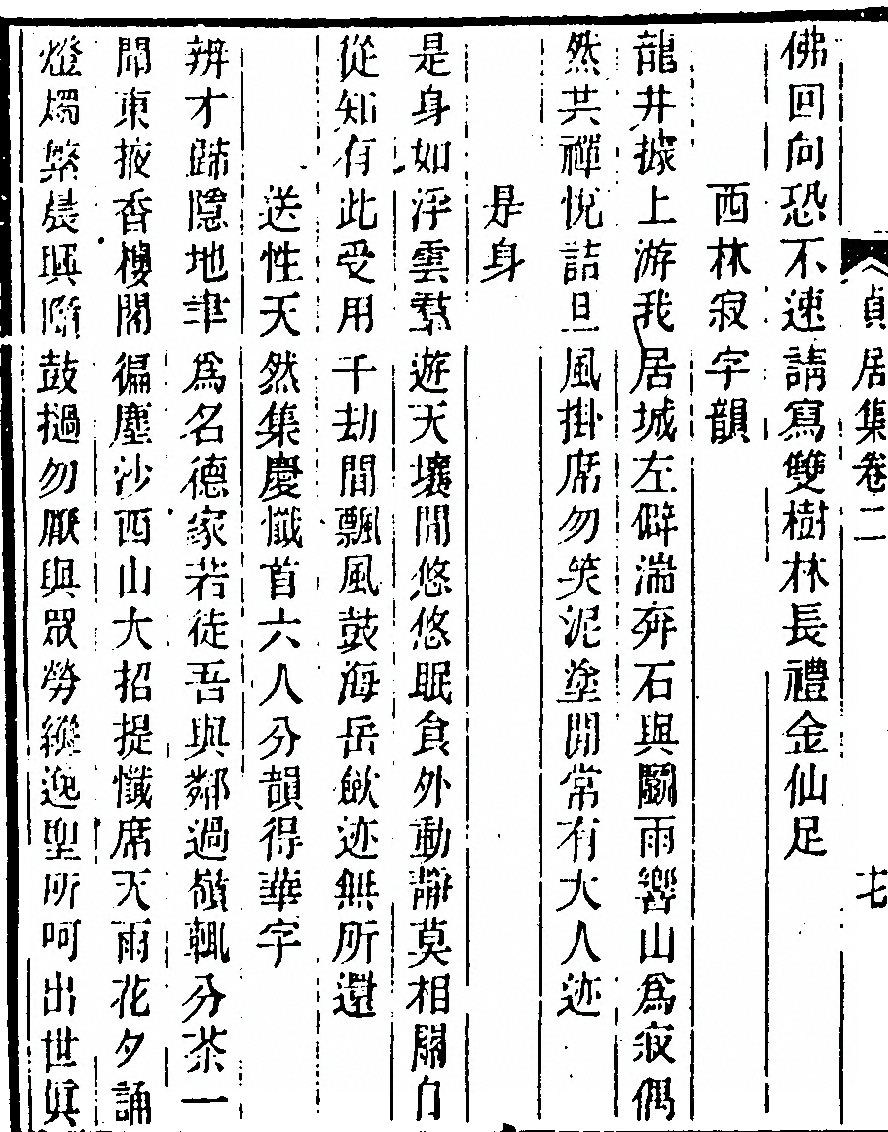 貞居集卷二
佛回向恐不速請寫雙樹林長禮金仙足
西林寂字韻
龍井據上游我居城左僻湍奔石與鬭雨響山爲寂偶
然共禪悅詰旦風掛席勿笑泥塗閒常有大人迹
是身
是身如浮雲羣遊天壤閒悠悠眠食外動靜莫相關自
從知有此受用千劫間飄風鼓海岳斂迹無所還
送性天然集慶懺首六人分韻得華字
辨才歸隱地聿爲名德家若徒吾與鄰過嶺輒分茶一
閒東掖香樓閣徧塵沙西山大招提懺席天雨花夕誦
燈燭繁晨興隮鼓撾勿厭與眾勞縱逸聖所呵出世眞